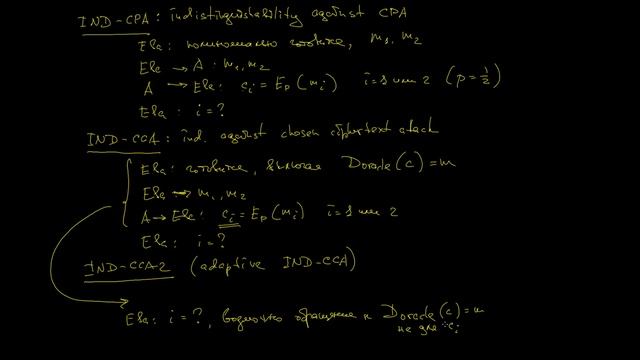 IND-CPA: indistinguishability against CPA
Ева: полиномиально готовится, m₁, m₂
Ева → A: m₁, m₂
A → Ева: cᵢ = Eₚ(mᵢ) i=1 или 2 (p=½)
Ева: i=?
IND-CCA: ind. against chosen ciphertext attack
Ева: готовится, вызывая Doracle(c)=m
Ева → m₁, m₂
A → Ева: cᵢ = Eₚ(mᵢ) i=1 или 2
Ева: i=?
IND-CCA2 (adaptive IND-CCA)
Ева: i=?, возможно обращение к Doracle(c)=m
не для cᵢ